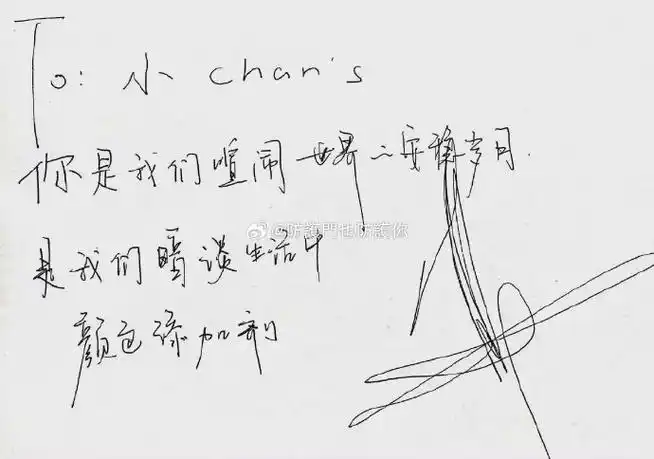 To: 小 chan's
你是我们喧闹世界之安稳岁月.
是我们暗谈生活中
颜色添加剂